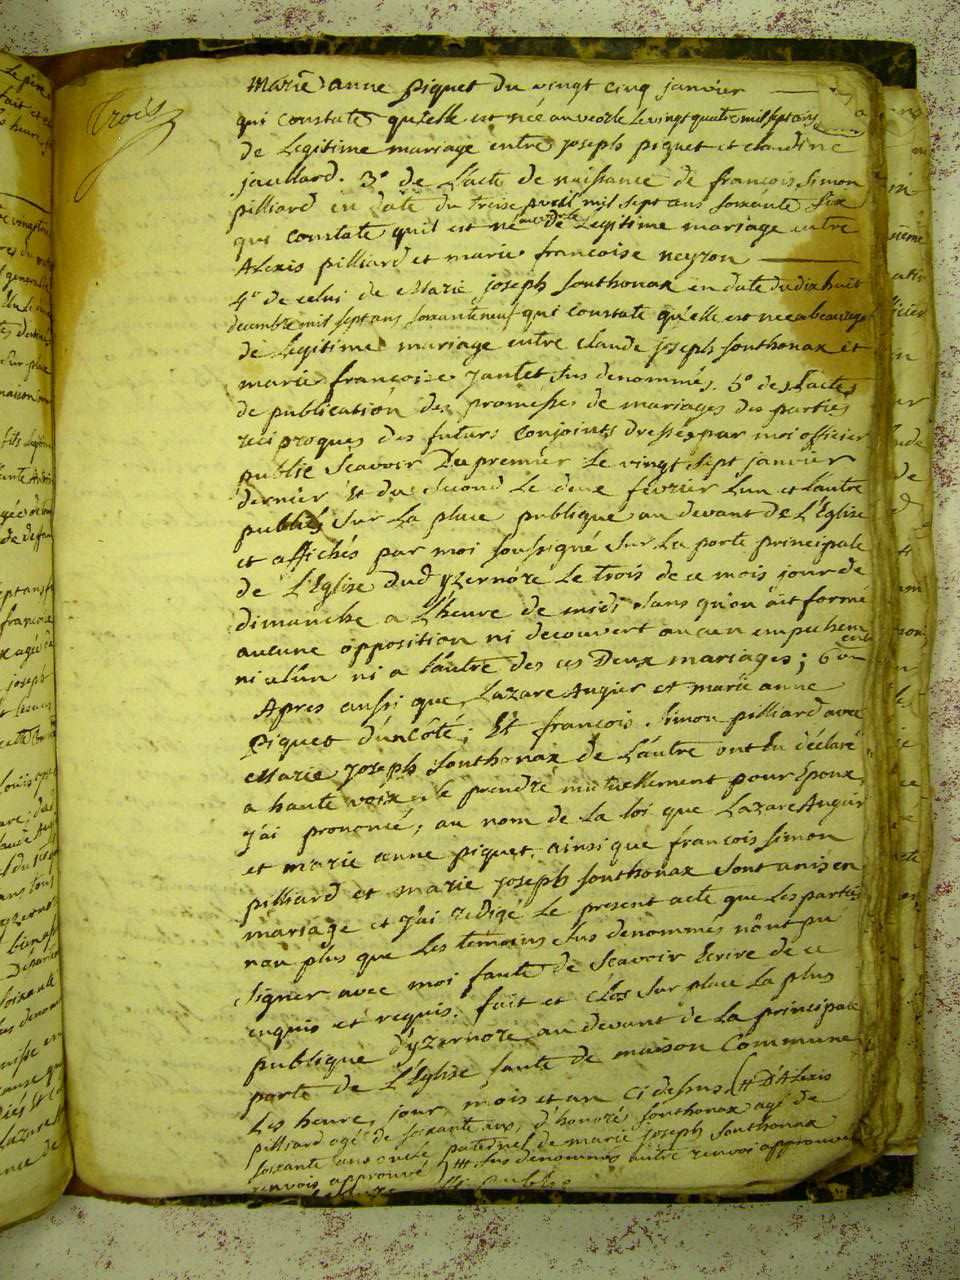 Trois
Marie anne Piquet du vingt cinq janvier
qui constate qu'elle est née au le vingt quatre mil sept cens
de Legitime mariage entre joseph piquet et claudine
jaillard. 3° de L'acte de naissance de françois Simon
pilliard en date du treise avril mil sept ans soixante Six
qui constate qu'il est né de Legitime mariage entre
Alexis pilliard et marie francoise neyron
4° de celui de Marie joseph Sonthonax en date du dix huit
decembre mil sept ans soixante neuf qui constate qu'elle est nee a
de Legitime mariage entre claude joseph Sonthonax et
marie francoise jantet sus denommés. 5° des L'actes
de publication des promesses de mariages des parties
reciproques des futurs conjoints dressés par moi officier
public Scavoir Du premier Le vingt sept janvier
dernier Et du Second Le deux fevrier L'un et L'autre
publiés Sur La place publique au devant de L'Eglise
et affichés par moi soussigné Sur La porte principale
de L'Eglise dud yzernore Le trois de ce mois jour de
dimanche a L'heure de midi sans qu'on ait formé
aucune opposition ni decouvert aucun empuchem
ent
ni a L'un ni a L'autre des ces Deux mariages; 6°
Apres aussi que Lazare Augier et marie anne
Piquet d'un côté; Et françois Simon pilliard avec
Marie joseph Sonthonax de L'autre ont Eu déclaré
a haute voix se prendre mutuellement pour Epoux
j'ai prononcé, au nom de La loi que Lazare Augier
et marie anne piquet, ainsi que françois Simon
pilliard et marie joseph Sonthonax Sont unis en
mariage et j'ai redigé Le present acte que Les parties
non plus que Les temoins Sus denommés n'ont pu
Signer avec moi faute de Scavoir Ecrire de ce
enquis et requis. fait et Clos Sur place La plus
publique d'yzernore au devant de La principale
porte de L'Eglise faute de maison Commune
Les heure, jour, mois et an Ci dessus (# D'Alexis
pilliard agé de soixante ans, d'honoré Sonthonax agé de
soixante ans oncle paternel de marie joseph Sonthonax
renvois approuvé # Sus denommés autre renvoi approuvé